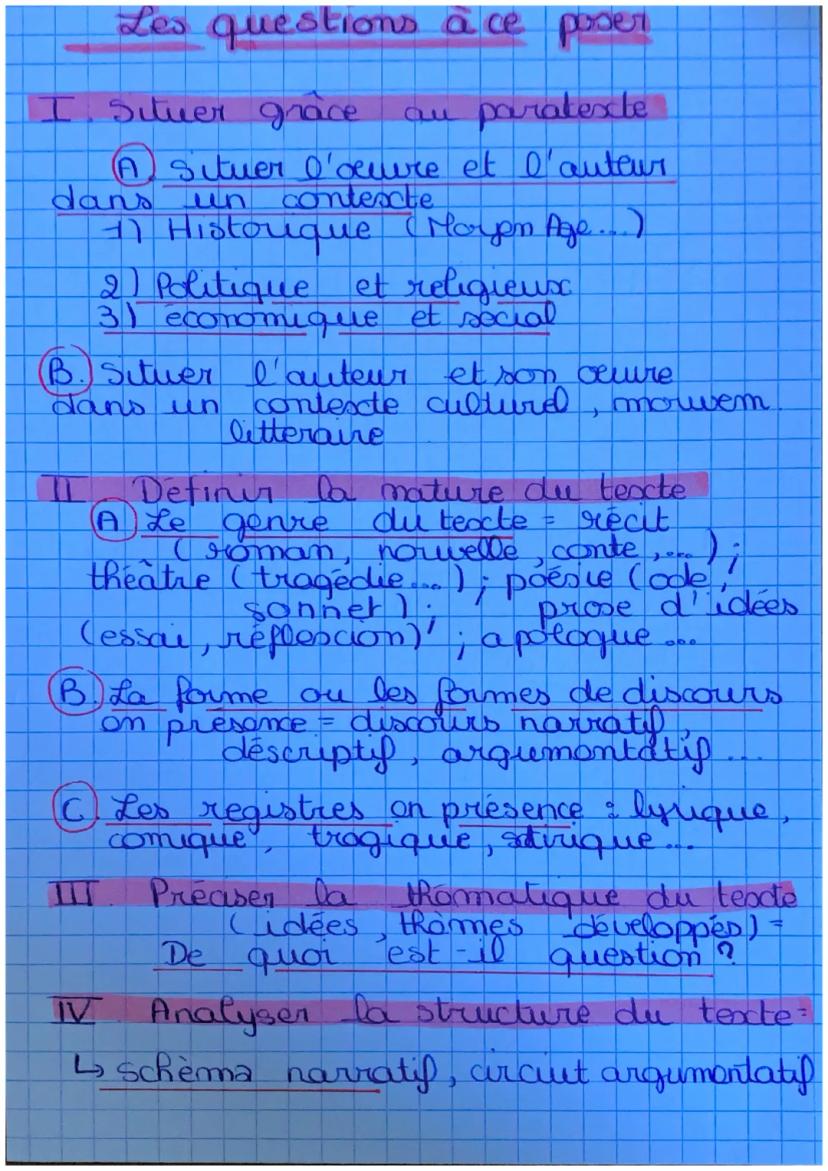 Les questions à ce poser
I. Situer grâce au paratexte
A) Situer l'oeuvre et l'auteur
dans un contexte
1) Historique (Moyen Age...)
2) Politique et religieux
3) économique et social
B. Situer l'auteur et son oeuvre
dans un contexte culturel, mouvem
litteraire
II Définir la nature du texte
A) Le genre du texte = récit
(roman, nouvelle, conte,...);
théâtre (tragédie...); poésie (ode,
sonnet); prose d'idées
(essai, réflexion); apologue...
B. La forme ou les formes de discours
en présence = discours narratif,
déscriptif, argumentatif...
C. Les registres en présence : lyrique,
comique, tragique, satirique...
III. Préciser la thématique du texte
(idées, thèmes développés) =
De quoi est-il question ?
IV Analyser la structure du texte =
↳ schèma narratif, circuit argumentatif